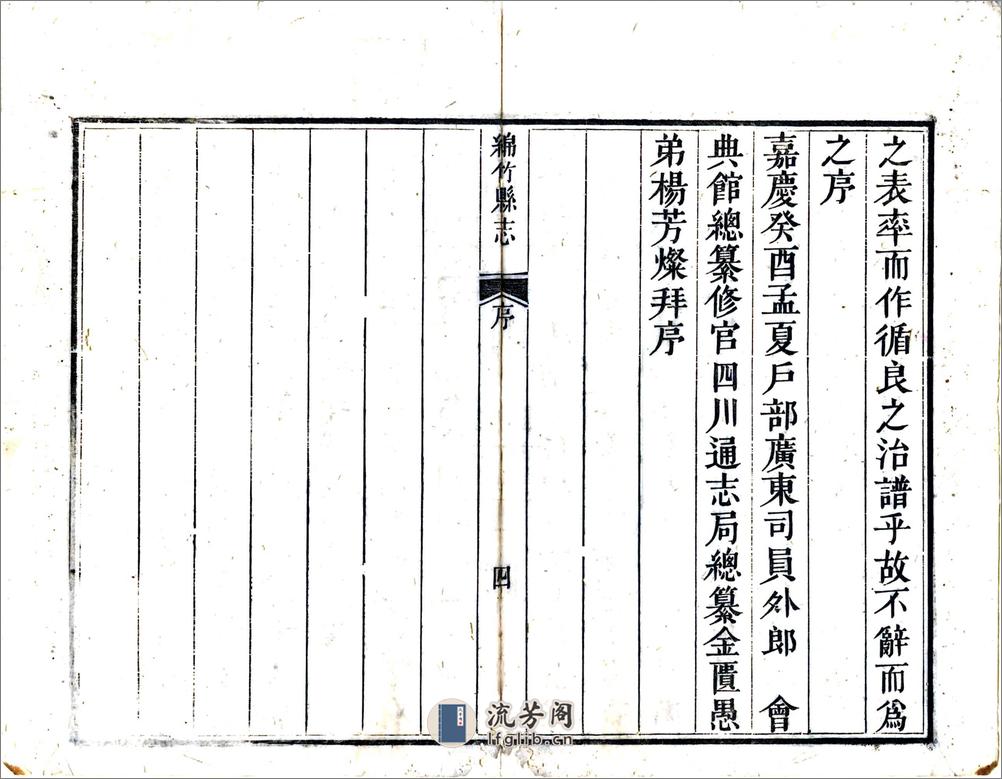 之表率而作循良之治譜乎故不辭而爲
之序
嘉慶癸酉孟夏戶部廣東司員外郎　會
典館總纂修官四川通志局總纂金匱愚
弟楊芳燦拜序
綿竹縣志　序　四
流芳阁
lfglib.cn